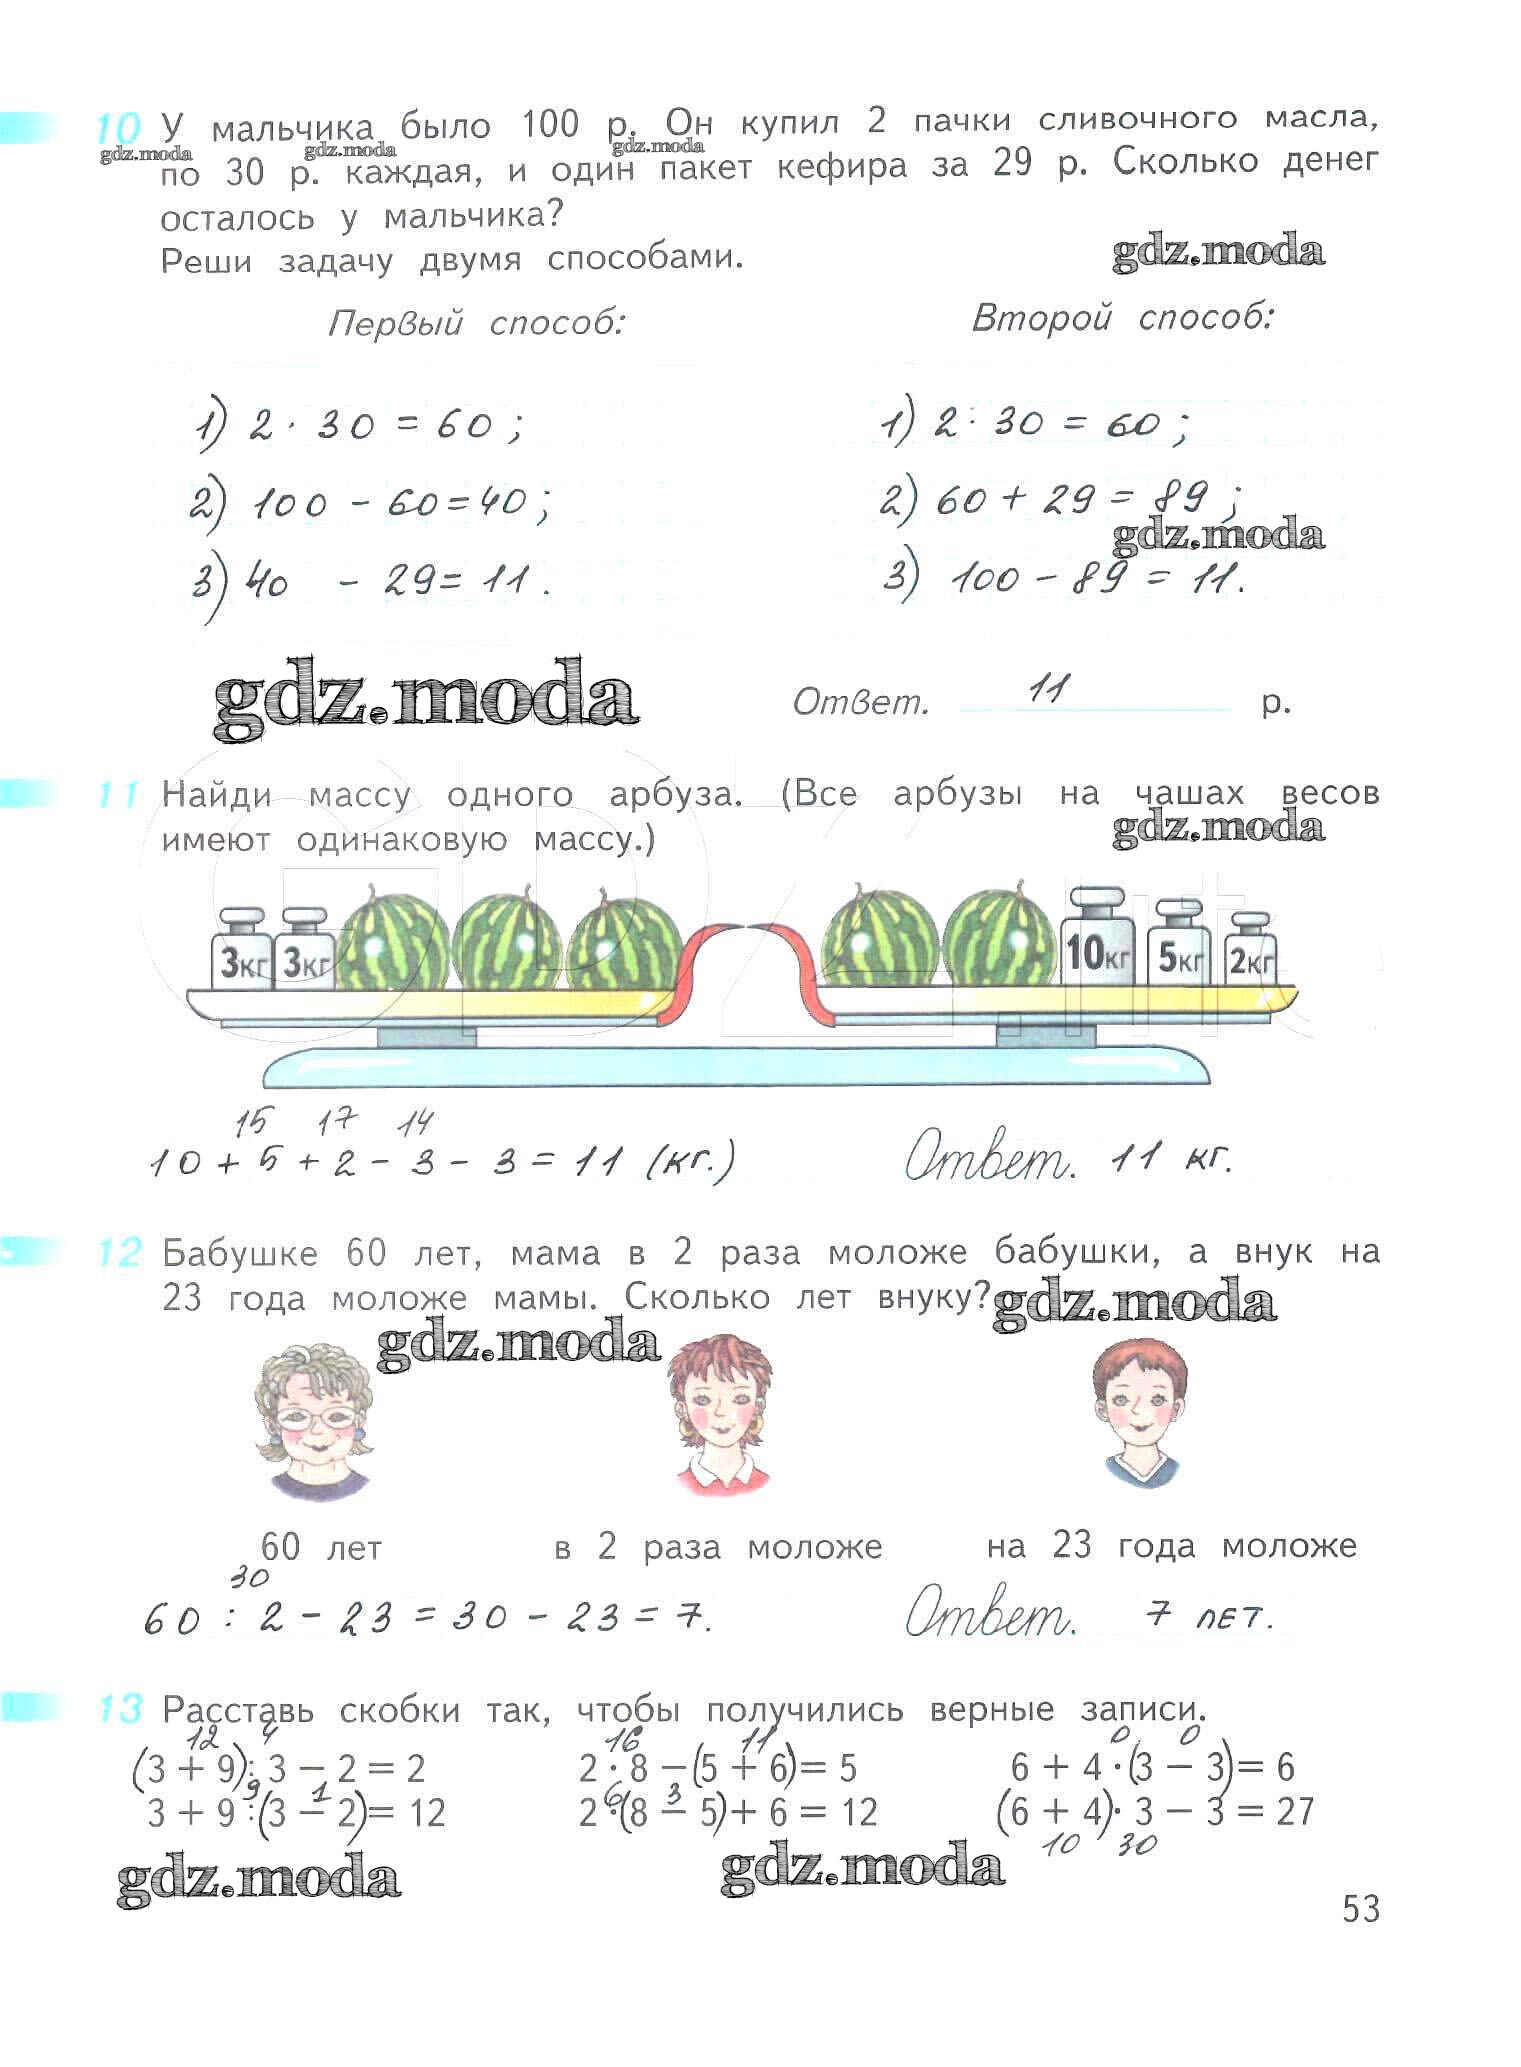 10 У мальчика было 100 р. Он купил 2 пачки сливочного масла,
gdz.moda gdz.moda gdz.moda
по 30 р. каждая, и один пакет кефира за 29 р. Сколько денег
осталось у мальчика?
gdz.moda
Реши задачу двумя способами.
Первый способ: Второй способ:
1) 2 · 30 = 60 ; 1) 2 · 30 = 60 ;
2) 100 - 60 = 40 ; 2) 60 + 29 = 89 ;
gdz.moda
3) 40 - 29 = 11 . 3) 100 - 89 = 11.
gdz.moda
Ответ. 11 р.
11 Найди массу одного арбуза. (Все арбузы на чашах весов
имеют одинаковую массу.)
gdz.moda
3кг 3кг 10кг 5кг 2кг
15 17 14
10 + 5 + 2 - 3 - 3 = 11 (кг.) Ответ. 11 кг.
12 Бабушке 60 лет, мама в 2 раза моложе бабушки, а внук на
23 года моложе мамы. Сколько лет внуку?
gdz.moda
gdz.moda
60 лет в 2 раза моложе на 23 года моложе
30
60 : 2 - 23 = 30 - 23 = 7. Ответ. 7 лет.
13 Расставь скобки так, чтобы получились верные записи.
12 4 16 11 0 0
(3 + 9) : 3 – 2 = 2 2 · 8 – (5 + 6) = 5 6 + 4 · (3 – 3) = 6
9 1 6 3
3 + 9 : (3 – 2) = 12 2 · (8 – 5) + 6 = 12 (6 + 4) · 3 – 3 = 27
10 30
gdz.moda gdz.moda
53